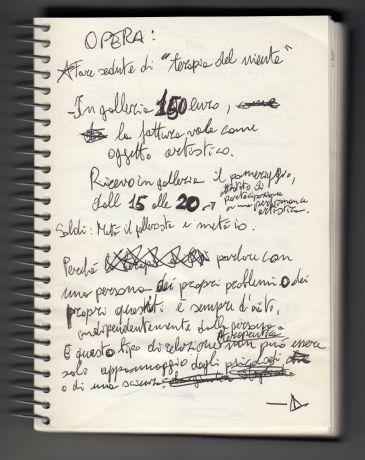 OPERA:
Fare sedute di "terapia del niente"
- In galleria 150 euro,
la fattura vale come
oggetto artistico.
Ricevo in galleria il pomeriggio,
dalle 15 alle 20 →
attestato di
partecipazione
a una performance
artistica.
Soldi: Metà il gallerista e metà io.
Perché parlare con
una persona dei propri problemi o dei
propri quesiti è sempre d'aiuto,
indipendentemente dalla persona.
terapeutica
E questo tipo di relazione non può essere
solo appannaggio degli psicologi
o di una scienza